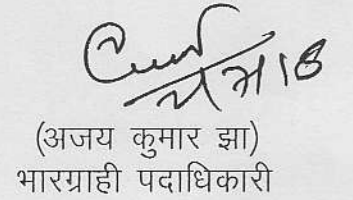 (अजय कुमार झा)
भारग्राही पदाधिकारी